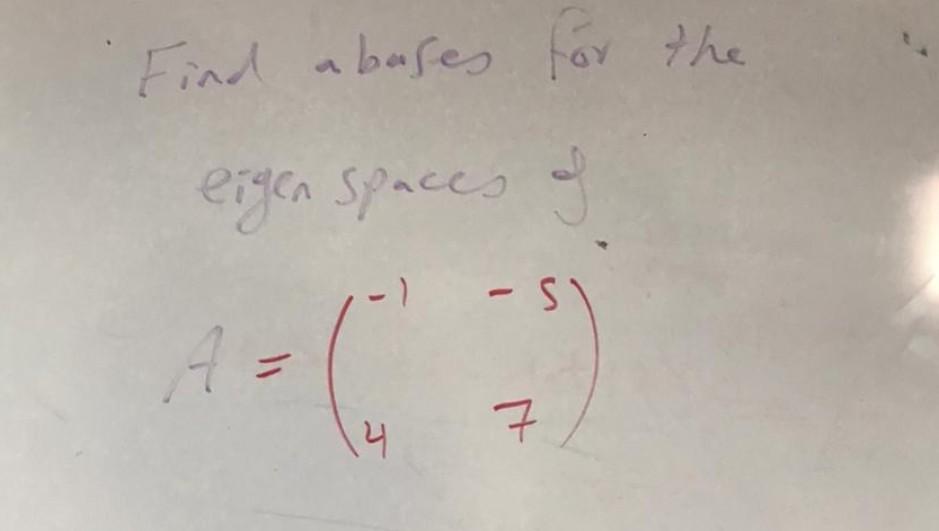 Find a bases for the
eigen spaces of
A = ( -1 -5
4 7 )